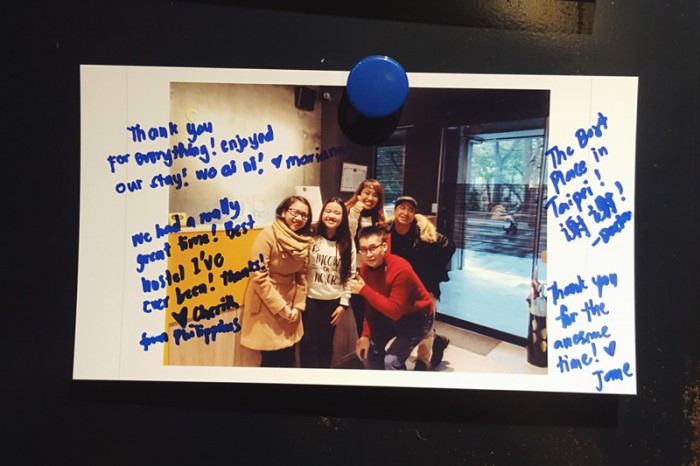 Thank you
For everything! enjoyed
our stay! wo ai ni! ♥
We had a really
great time! Best
hostel I've
ever been! Thanks!
♥
from Philippines
The Best
Place in
Taipei!
谢谢!
Thank you
for the
awesome
time! ♥
Jane